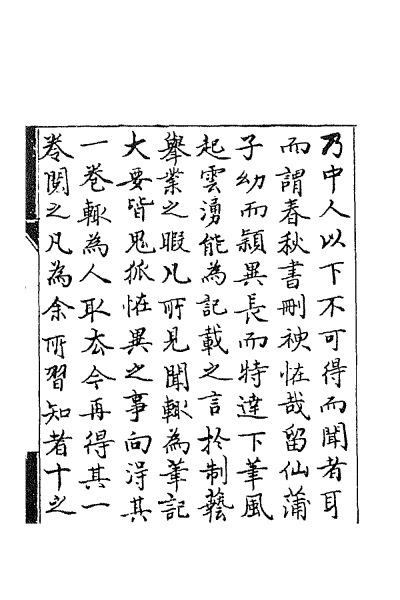 乃中人以下不可得而聞者耳
而謂春秋書刪袂恠哉留仙蒲
子幼而穎異長而特達下筆風
起雲湧能為記載之言於制藝
舉業之暇凡所見聞輙為筆記
大要皆鬼狐恠異之事向淂其
一卷輙為人取厺今再得其一
卷閱之凡為余所習知者十之